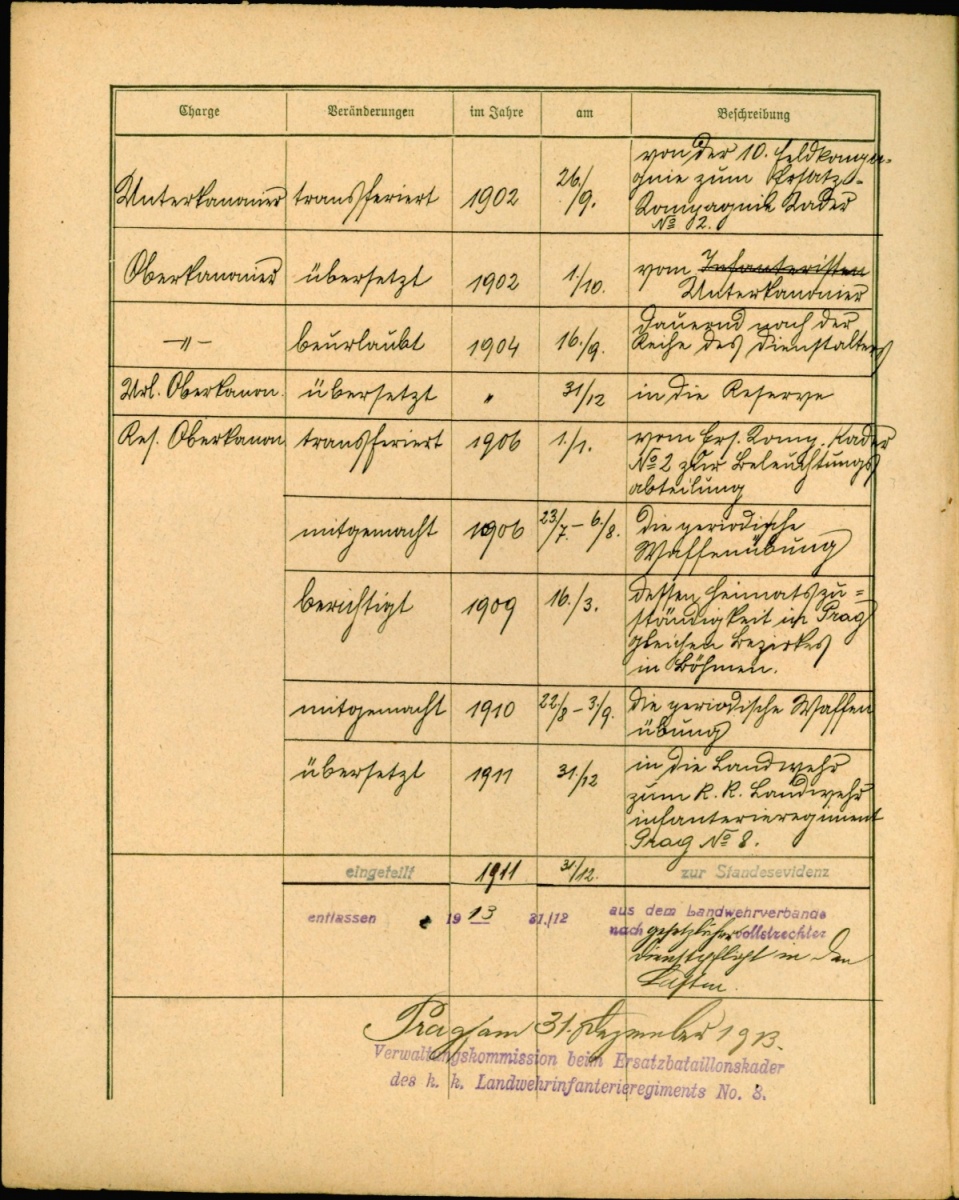 Charge Veränderungen im Jahre am Beschreibung
von der 10. Feldkompa-
Unterkanonier transferiert 1902 26./9. gnie zum Ersatz-
Kompagnie Kader
No 2.
Oberkanonier übersetzt 1902 1./10. vom Infanteristen
Unterkanonier
dauernd nach der
-"- beurlaubt 1904 16./9. Reihe des Dienstalters
Url. Oberkanon. übersetzt " 31/12 in die Reserve
Res. Oberkanon transferiert 1906 1./1. vom Ers. Komp. Kader
No 2 zur Beleuchtungs
abteilung
mitgemacht 1906 23/7. - 6./8. die periodische
Waffenübung
berichtigt 1909 16./3. dessen Heimatszu=
ständigkeit in Prag
gleichen Bezirkes
in Böhmen.
mitgemacht 1910 22/8 - 3./9. die periodische Waffen
übung
übersetzt 1911 31./12 in die Landwehr
zum K. K. Landwehr
infanterieregiment
Prag No 8.
eingeteilt 1911 31/12. zur Standesevidenz
entlassen 1913 31./12 aus dem Landwehrverbande
nach gesetzlicher vollstreckter
Dienstpflicht in den
Prag am 31. Dezember 1913.
Verwaltungskommission beim Ersatzbataillonskader
des k. k. Landwehrinfanterieregiments No. 8.